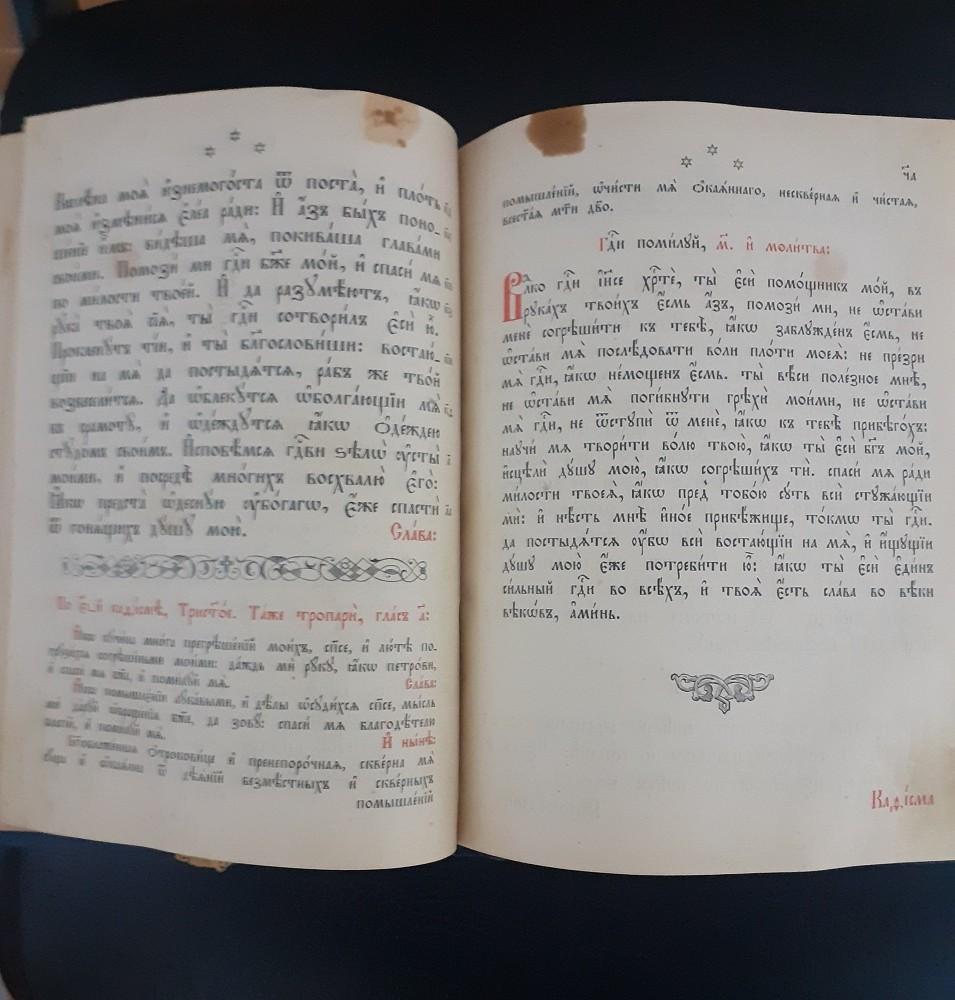 моѧ̀ и҆знемого́ста ѿ поста̀, и҆ пло́ть
моѧ̀ и҆змѣни́сѧ є҆ле́а ра́ди: И҆ а҆́зъ бы́хъ поно-
ше́нїе и҆̀мъ: ви́дѣша мѧ̀, покива́ша глава́ми
свои́ми. Помози́ ми гдⷭ҇и бж҃е мо́й, и҆ спаси́ мѧ
по ми́лости твое́й. И҆ да разꙋмѣ́ютъ, ꙗ҆́кѡ
рꙋка̀ твоѧ̀ сїѧ̀, ты̀ гдⷭ҇и сотвори́лъ є҆сѝ ю҆̀.
Прокленꙋ́тъ ті́и, и҆ ты̀ благослови́ши: востаю́-
щїи на мѧ̀ да постыдѧ́тсѧ, ра́бъ же тво́й
возвесели́тсѧ. Да ѡ҆блекꙋ́тсѧ ѡ҆болга́ющїи мѧ̀
въ срамотꙋ̀, и҆ ѡ҆де́ждꙋтсѧ ꙗ҆́кѡ ѻ҆де́ждею
стꙋдо́мъ свои́мъ. И҆сповѣ́мсѧ гдⷭ҇ви ѕѣлѡ̀ ᲂу҆сты̀
мои́ми, и҆ посредѣ̀ мно́гихъ восхвалю̀ є҆го̀:
Ꙗ҆́кѡ предста̀ ѡ҆деснꙋ́ю ᲂу҆бо́гагѡ, є҆́же спастѝ
ѿ гонѧ́щихъ дꙋ́шꙋ мою̀. Сла́ва:
По ѕ҃і-й каѳі́смѣ, Трист҃о́е. Та́же тропарѝ, гла́съ а҃:
мнѡ́га прегрѣше́нїй мои́хъ, сп҃се, и҆ лю́тѣ по-
согрѣше́ньми мои́ми: да́ждь мѝ рꙋ́кꙋ, ꙗ҆́кѡ петро́ви,
и҆ спаси́ мѧ бж҃е, и҆ поми́лꙋй мѧ̀. Сла́ва:
помышле́нїи лꙋка́выми, и҆ дѣ́лы ѡ҆сꙋди́хсѧ сп҃се, мы́сль
ми да́рꙋй бж҃е, да зовꙋ̀: спаси́ мѧ благодѣ́телю
и҆ поми́лꙋй мѧ̀. И҆ ны́нѣ:
ѻ҆трокови́це и҆ пренепоро́чнаѧ, скве́рна мѧ̀
ѿ дѣѧ́нїй безмѣ́стныхъ и҆ скве́рныхъ
помышле́нїй
ч҃а
помышле́нїй, ѡ҆чи́сти мѧ̀ ѻ҆каѧ́ннаго, нескве́рнаѧ и҆ чи́стаѧ,
всест҃а́ѧ мт҃и дв҃о.
Гдⷭ҇и поми́лꙋй, м҃. и҆ моли́тва:
Влⷣко гдⷭ҇и і҆и҃се хрⷭ҇тѐ, ты̀ є҆сѝ помо́щникъ мо́й, въ
рꙋка́хъ твои́хъ є҆́смь а҆́зъ, помози́ ми, не ѡ҆ста́ви
менѐ согрѣши́ти къ тебѣ̀, ꙗ҆́кѡ заблꙋжде́нъ є҆́смь, не
ѡ҆ста́ви мѧ̀ послѣ́довати во́ли пло́ти моеѧ̀: не пре́зри
мѧ̀ гдⷭ҇и, ꙗ҆́кѡ не́мощенъ є҆́смь. ты̀ вѣ́си поле́зное мнѣ̀,
не ѡ҆ста́ви мѧ̀ поги́бнꙋти грѣхѝ мои́ми, не ѡ҆ста́ви
мѧ̀ гдⷭ҇и, не ѿстꙋпѝ ѿ менѐ, ꙗ҆́кѡ къ тебѣ̀ прибѣго́хъ:
наꙋчи́ мѧ твори́ти во́лю твою̀, ꙗ҆́кѡ ты̀ є҆сѝ бг҃ъ мо́й,
и҆сцѣлѝ дꙋ́шꙋ мою̀, ꙗ҆́кѡ согрѣши́хъ тѝ. спаси́ мѧ ра́ди
ми́лости твоеѧ̀, ꙗ҆́кѡ пред̾ тобо́ю сꙋ́ть всѝ стꙋжа́ющїи
мѝ: и҆ нѣ́сть мнѣ̀ и҆но́е прибѣ́жище, то́кмѡ ты̀ гдⷭ҇и.
да постыдѧ́тсѧ ᲂу҆́бѡ всѝ востаю́щїи на мѧ̀, и҆ и҆́щꙋщїи
дꙋ́шꙋ мою̀ є҆́же потреби́ти ю҆̀: ꙗ҆́кѡ ты̀ є҆сѝ є҆ди́нъ
си́льный гдⷭ҇и во всѣ́хъ, и҆ твоѧ̀ є҆́сть сла́ва во вѣ́ки
вѣкѡ́въ, а҆ми́нь.
Каѳі́сма